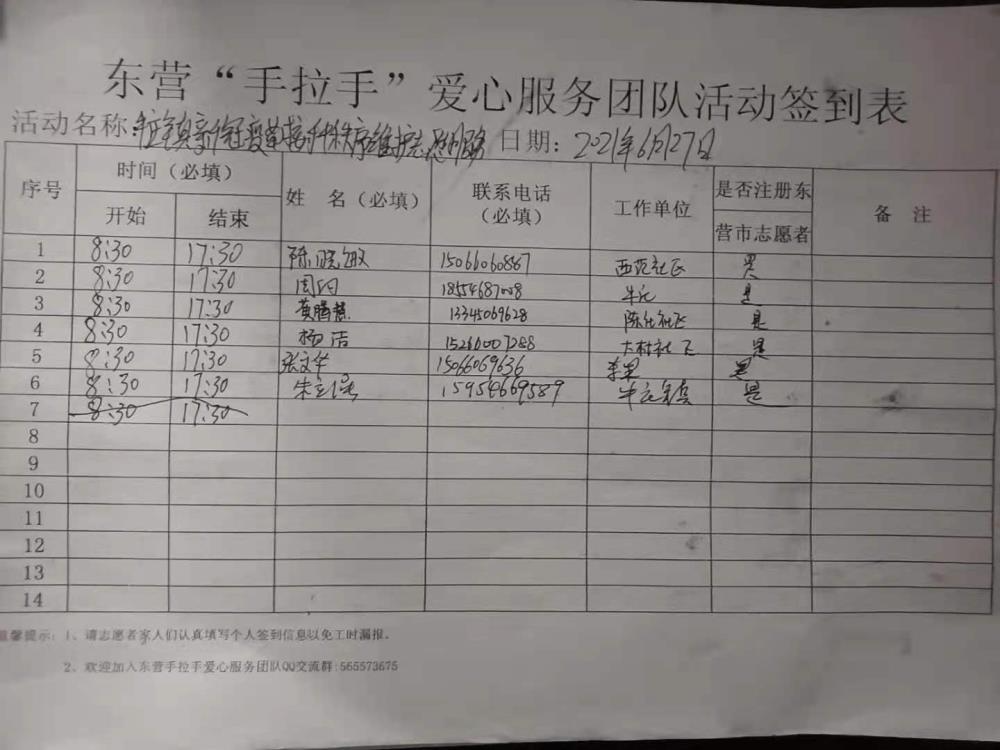 东营“手拉手”爱心服务团队活动签到表
活动名称:镇新冠疫苗接种秩序维护志愿服务 日期：2021年6月27日
序号 时间（必填） 姓 名（必填） 联系电话（必填） 工作单位 是否注册东营市志愿者 备 注
开始 结束
1 8:30 17:30 陈晓敏 15066060867 西范社区 是
2 8:30 17:30 周 18554687008 牛 是
3 8:30 17:30 黄腾慧 13345069628 陈 是
4 8:30 17:30 杨洁 15260007288 大村社区 是
5 8:30 17:30 张文华 15066069636 是
6 8:30 17:30 朱 15954669589 牛庄镇 是
7 8:30 17:30
8
9
10
11
12
13
14
温馨提示：1、请志愿者家人们认真填写个人签到信息以免工时漏报。
2、欢迎加入东营手拉手爱心服务团队QQ交流群:565573675